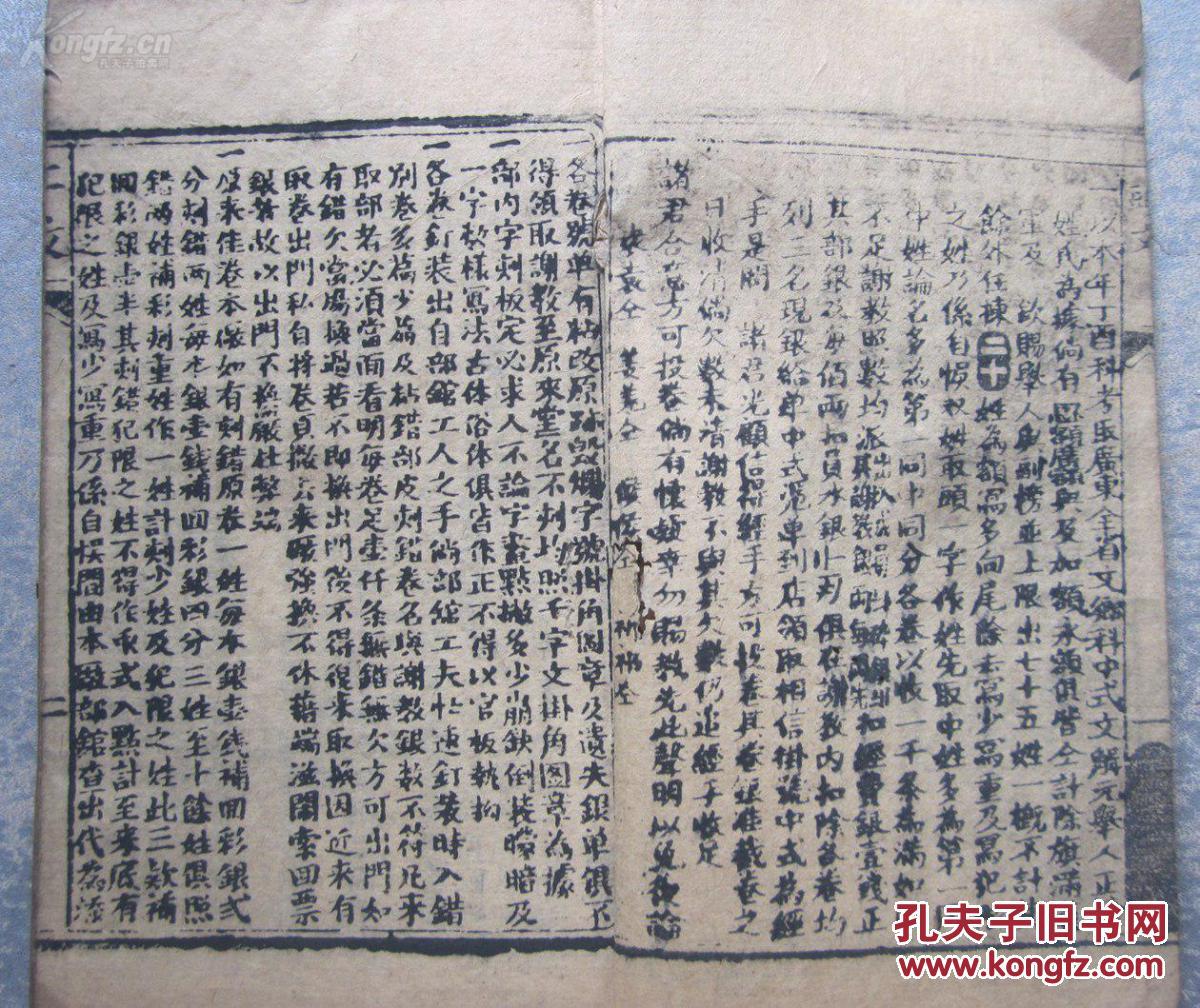 一以本年丁酉科考取廣東全省文鄉科中式文解元舉人正
姓氏為據倘有恩額廣額與及加額永額俱皆全計除旗滿
軍及 欽賜舉人與副榜並上限出七十五姓一概不計
餘外任揀二十姓為額寫多向尾除去寫少寫重及寫犯
之姓乃係自悞双姓取頭一字作姓先取中姓多為第一
中姓論名多為第一同中同分各卷以收一千条為滿如
不足謝教照數均派其謝教銀 扣經費銀壹錢正
其部銀 每佰両 水銀 俱在謝教內扣除各卷均
列三名現銀給單中式憑單到店領取相信掛號中式為經
手是問 諸君光顧信 經手方可投卷其卷銀准截卷之
日收清倘欠數未清謝教不與其欠數仍追經手收足
諸君合意方可投卷倘有懷疑幸勿賜教先此聲明以免後論
各卷號單有粘改原跡毀爛字號掛角圖章及遺失銀單俱不
得領取謝教至原來堂名不刻均照千字文掛角圖章為據
一部內字刻板定必求人不論字畫點撇多少崩缺倒裝矇暗及
一字歀樣寫法古体俗体俱皆作正不得以官板執拘
一各卷釘装出自部館工人之手倘部館工夫忙速釘裝時入錯
別卷多篇少篇及粘錯部皮刻錯卷名與謝教銀數不符凡來
取部者必須當面看明每卷足壹仟条無錯無欠方可出門如
有錯欠當場換過若不即換出門後不得復來取換因近來有
取卷出門私自擇卷頁撤去來 強換不休藉端滋鬧索回票
銀等故以出門不換嚴杜弊端
一原來佳卷本 如有刻錯原卷一姓每本銀壹錢補回彩銀弍
分刻錯両姓每本銀壹錢補回彩銀四分三姓至十餘姓俱照
錯両姓補彩刻重姓作一姓計刻少姓及犯限之姓此三欵補
回彩銀壹半其刻錯犯限之姓不得作承式入點計至來底有
犯限之姓及寫少寫重乃係自悞間由本 部館查出代為添
二
孔夫子旧书网
www.kongfz.com
Kongfz.cn
孔夫子拍卖网